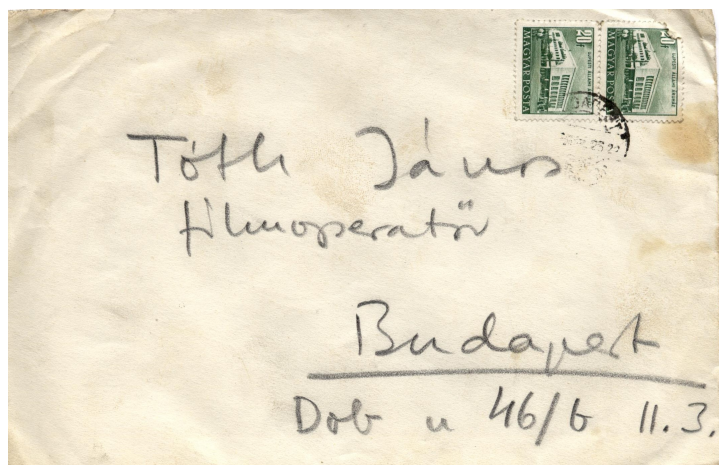 20f
MAGYAR POSTA
MAGYAR POSTA
Tóth János
filmoperatőr
Budapest
Dob u 46/b II.3.